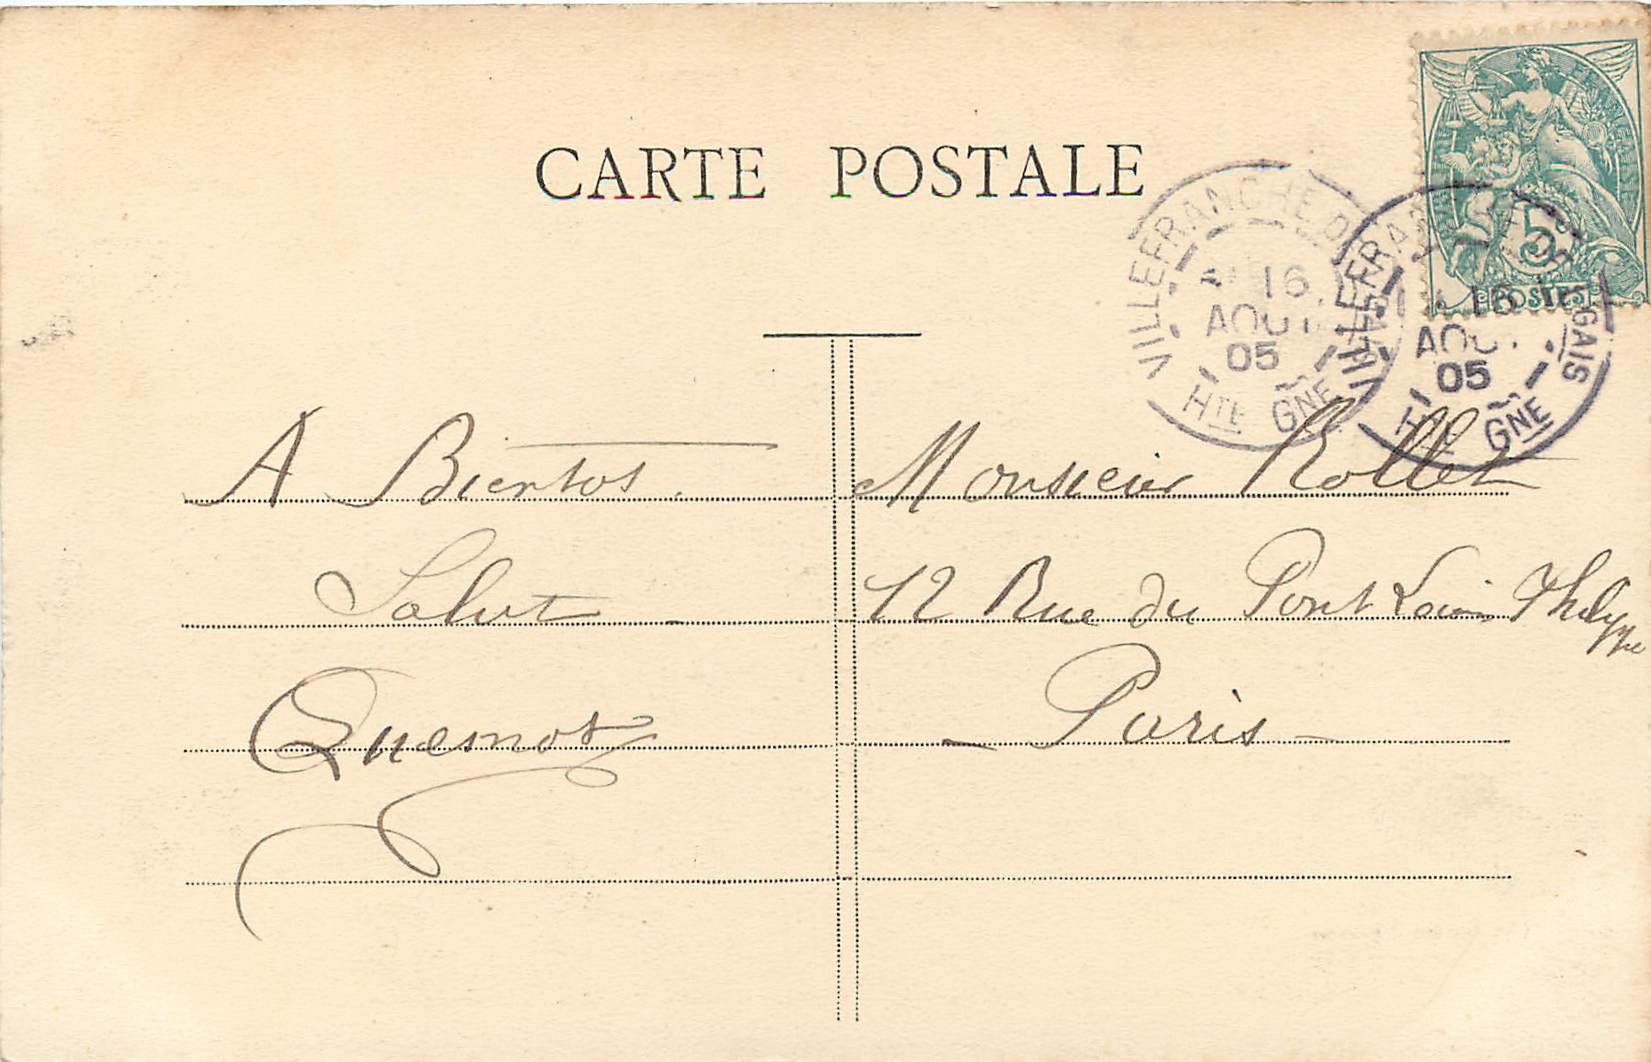 CARTE POSTALE
5
POSTES
VILLEFRANCHE DE
16
AOUT
05
Hte GNE
VILLEFRA GAIS
AOU
05
Hte GNE
A Bientot.
Salut
Quemot
Monsieur Rollet
12 Rue du Pont Louis Phelyppe
Paris